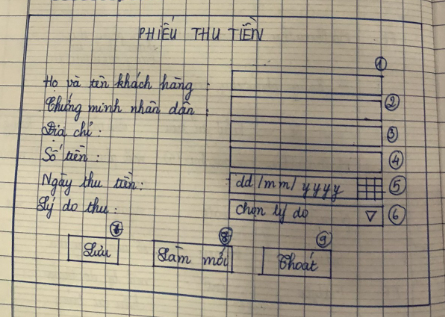 PHIẾU THU TIỀN
1
Họ và tên khách hàng :
Chứng minh nhân dân : 2
Địa chỉ : 3
Số tiền : 4
Ngày thu tiền : dd/mm/yyyy 5
Lý do thu : chọn lý do 6
7 8 9
Lưu Làm mới Thoát